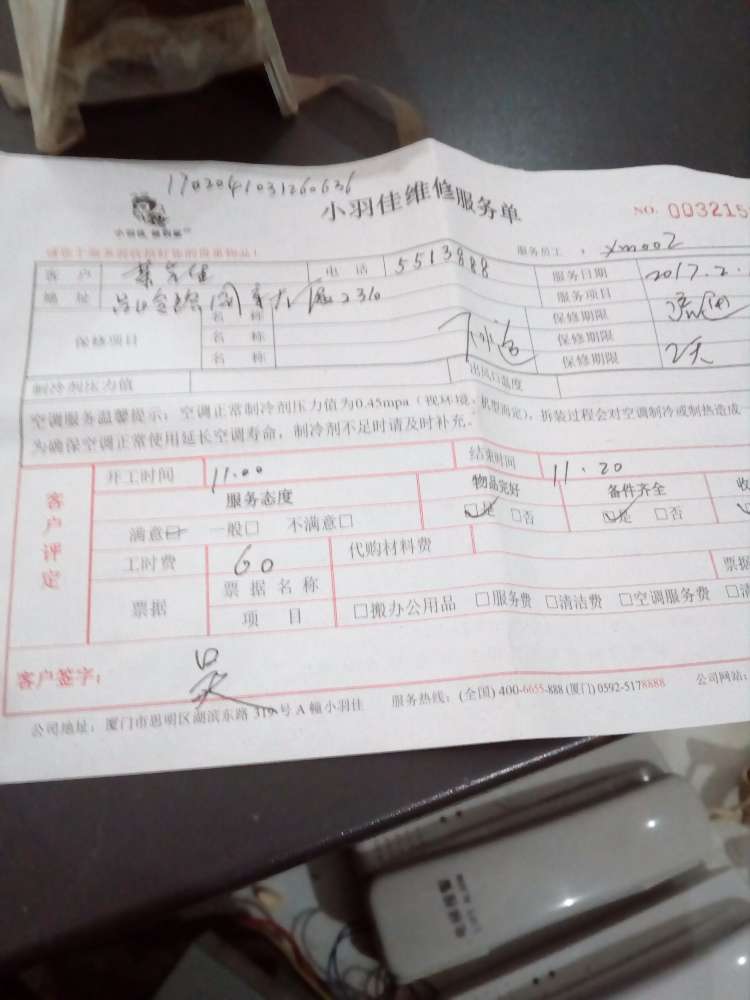 1702041031260636
小羽佳维修服务单
NO. 003215
小羽佳
服务员工： xm002
客户 电话 5513888 服务日期 2017.2.
地址 服务项目
保修项目 名称 保修期限
名称 下水道 保修期限
名称 保修期限 2天
制冷剂压力值 出风口温度
空调服务温馨提示：空调正常制冷剂压力值为0.45mpa（视环境、机型而定），拆装过程会对空调制冷或制热造成
为确保空调正常使用延长空调寿命，制冷剂不足时请及时补充。
客户评定
开工时间 11:00 结束时间 11.20
服务态度 物品完好 备件齐全 收
满意□ 一般□ 不满意□ □是 □否 □是 □否
工时费 60 代购材料费
票据 票据名称 票据
项目 □搬办公用品 □服务费 □清洁费 □空调服务费 □清
客户签字： 吴
公司地址：厦门市思明区湖滨东路319号A幢小羽佳 服务热线：(全国) 400-6655-888 (厦门) 0592-5178888 公司网站：